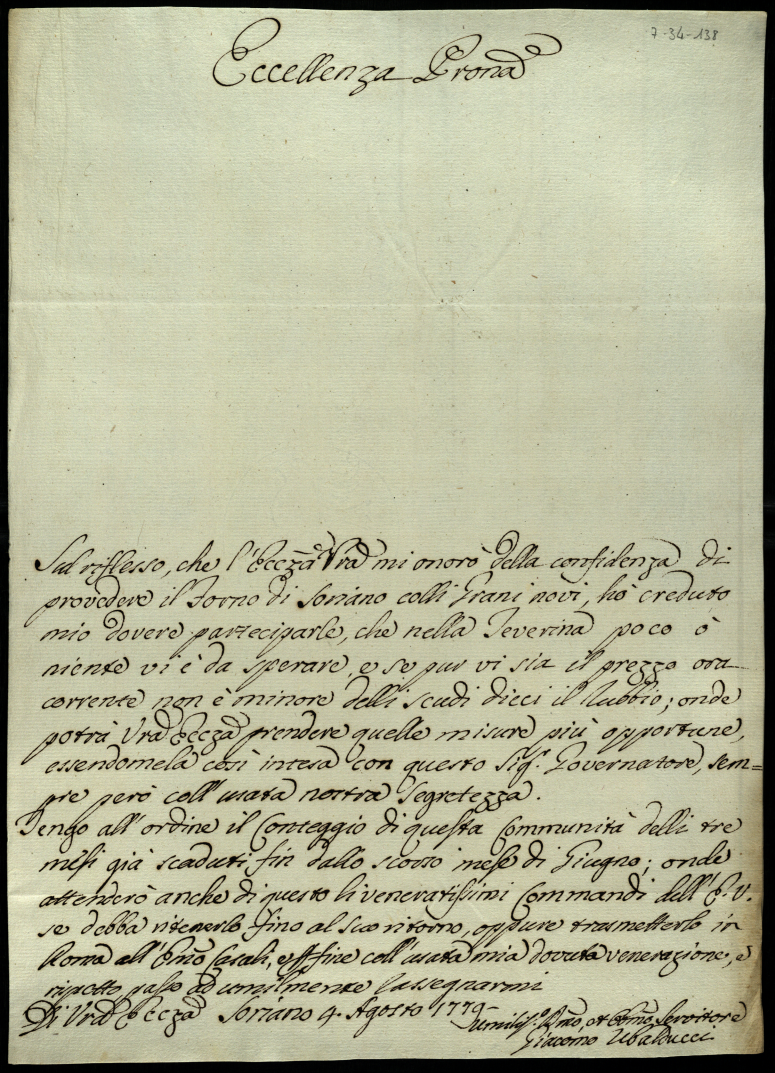 7-34-138
Eccellenza Prona
Sul riflesso, che l'Eccza Vra mi onorò della confidenza di
provedere il Forno di Soriano colli Grani novi, hò creduto
mio dovere parteciparle, che nella Teverina poco ò
niente vi è da sperare, e se pur vi sia il prezzo ora
corrente non è minore delli scudi dieci il Rubbio; onde
potrà Vra Eccza prendere quelle misure più opportune,
essendomela così intesa con questo Sigr. Governatore, sem=
pre però coll'usata nostra segretezza.
Tengo all'ordine il Conteggio di questa Communità delli tre
mesi già scaduti fin dallo scorso mese di Giugno; onde
attenderò anche di questo li veneratissimi Commandi dell'E.V.
se debba ritenerlo fino al suo ritorno, oppure trasmetterlo in
Roma all'Emo Casali, e fine coll'usata mia dovuta venerazione, e
rispetto passo ad umilmente rassegnarmi
Di Vra Eccza Soriano 4. Agosto 1779
Umiliss. Dmo, et Obmo Servitore
Giacomo Ubalducci